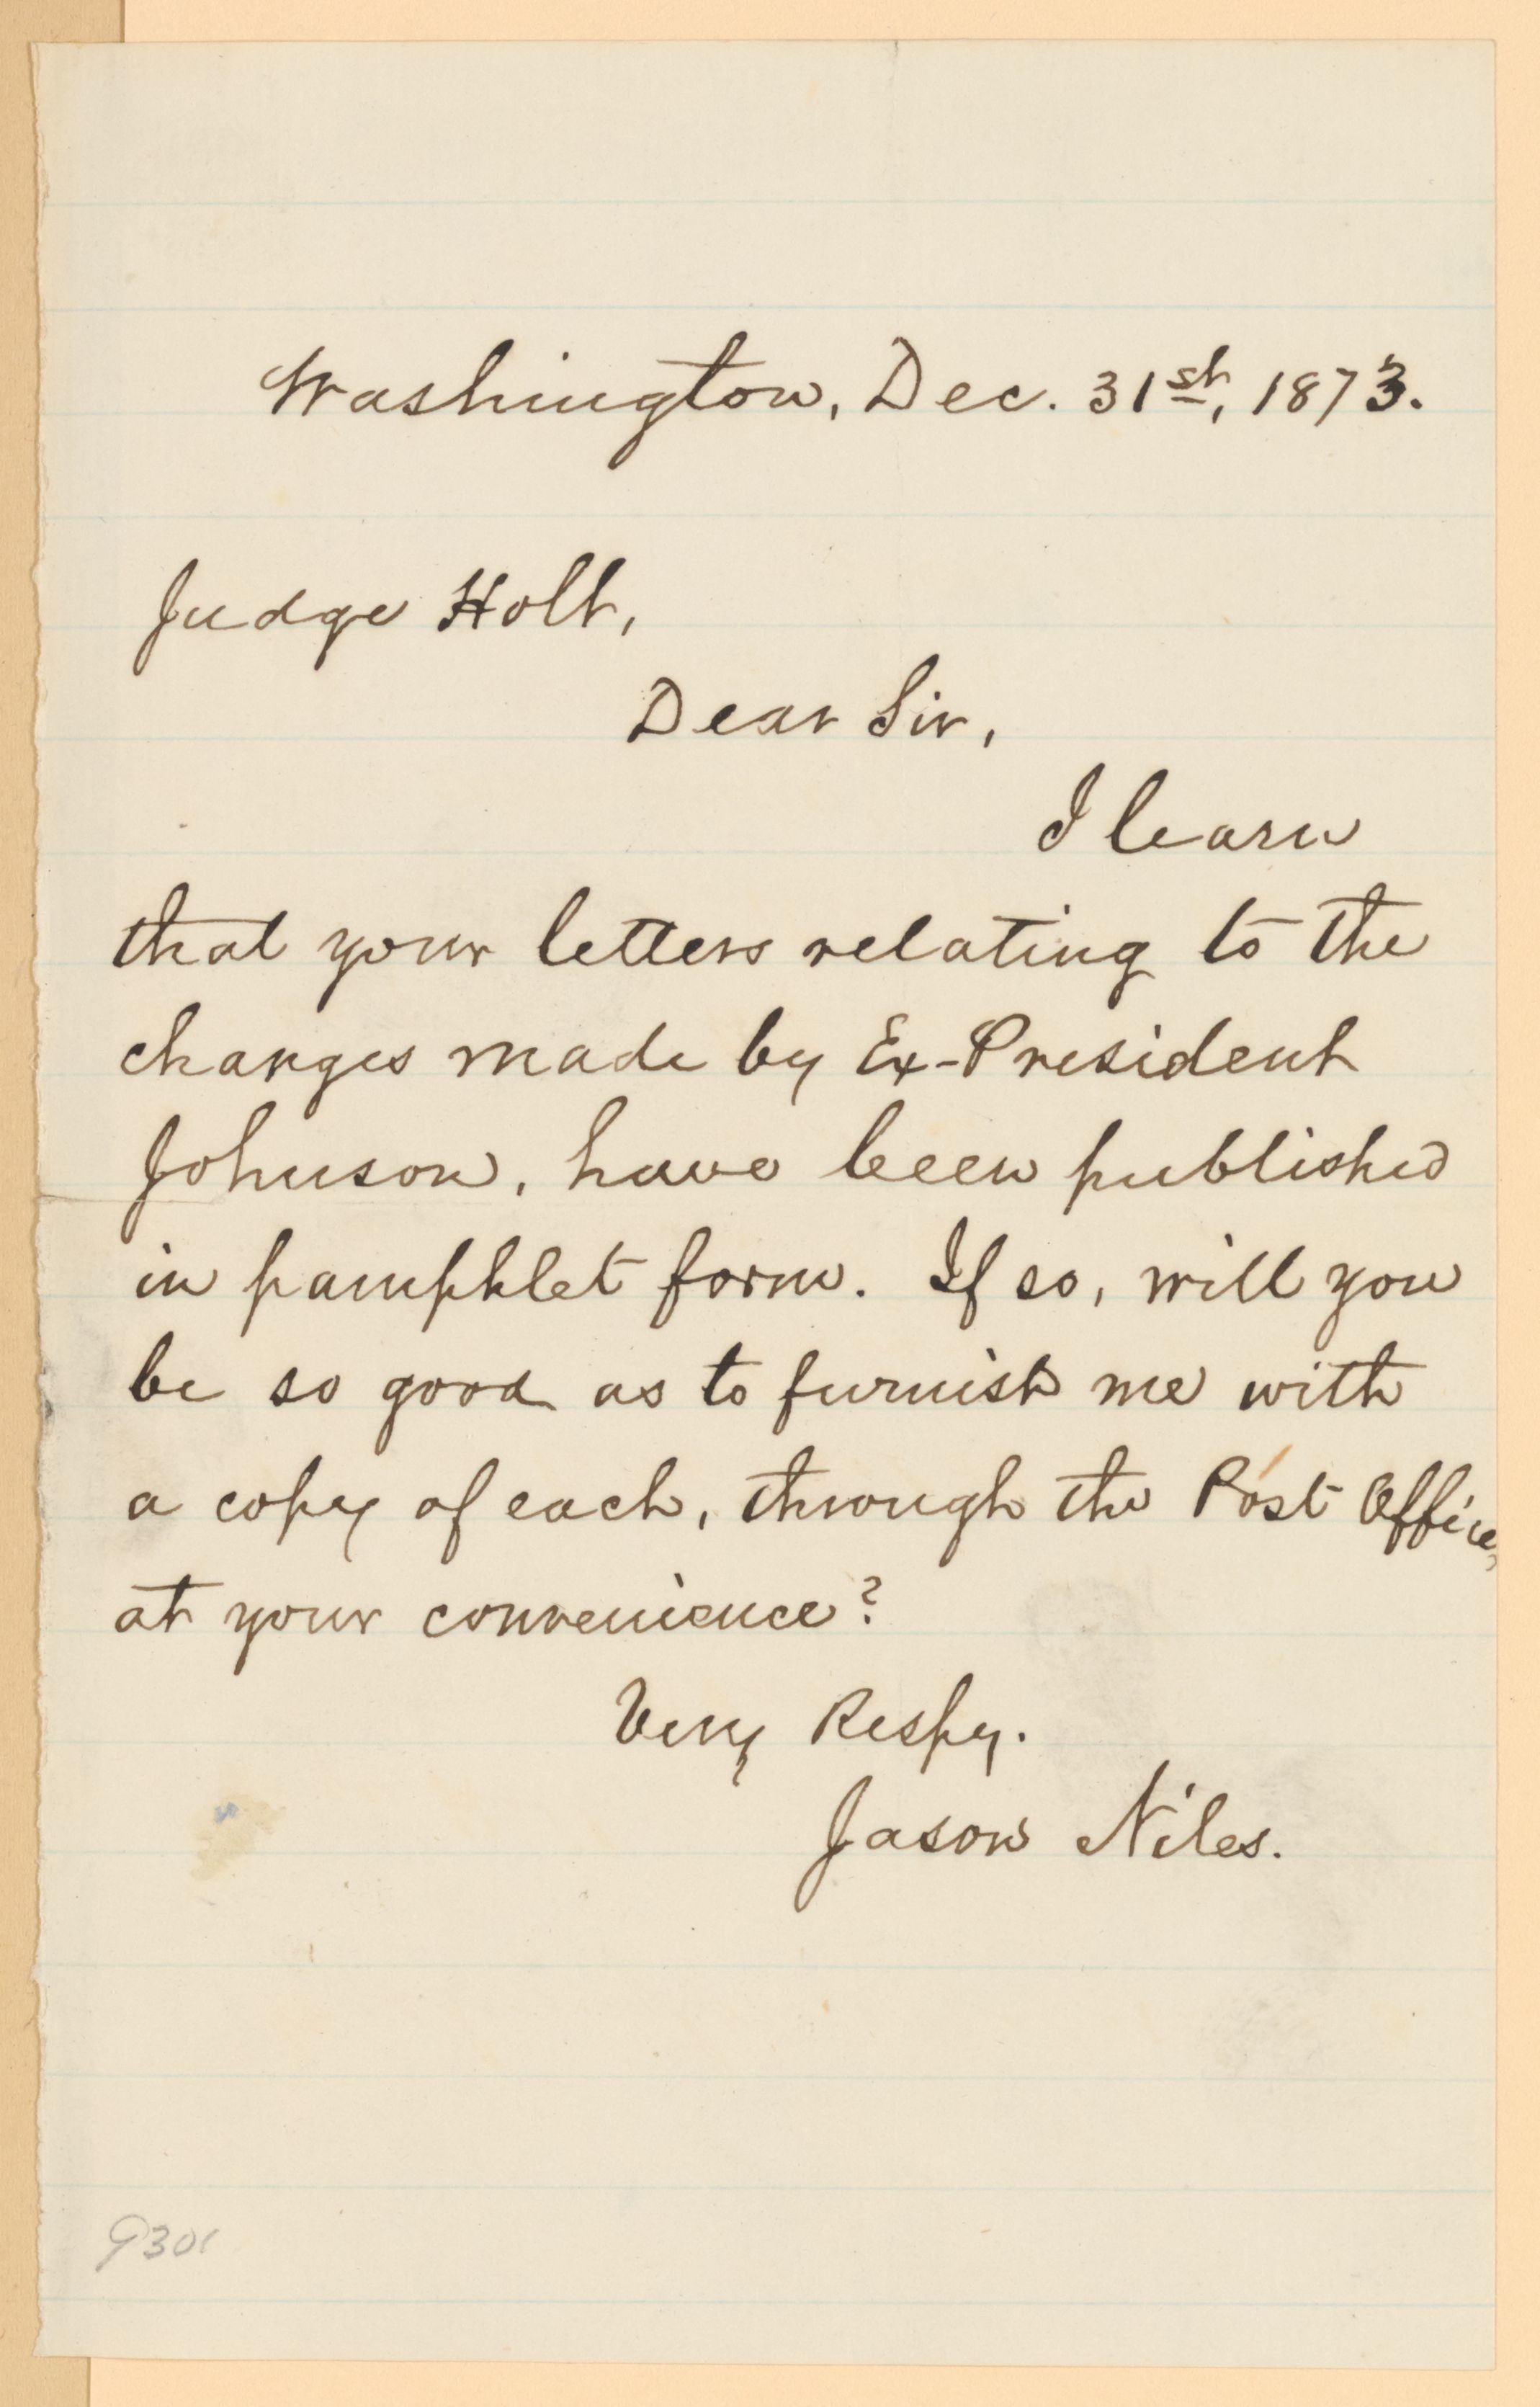 Washington, Dec. 31st, 1873.
Judge Holt,
Dear Sir,
I learn
that your letters relating to the
charges made by Ex-President
Johnson, have been published
in pamphlet form. If so, will you
be so good as to furnish me with
a copy of each, through the Post Office,
at your convenience?
Very Respy.
Jason Niles.
9301